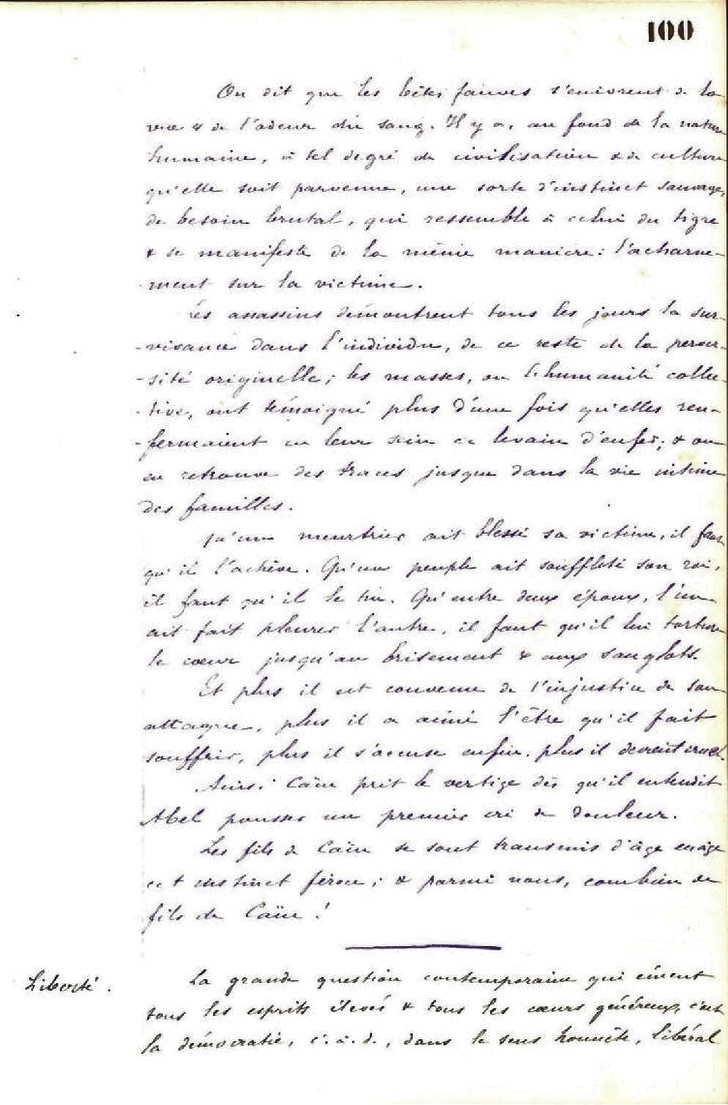 100
On dit que les bêtes fauves s'enivrent de la
vue & de l'odeur du sang. Il y a, au fond de la nature
humaine, à tel degré de civilisation & de culture
qu'elle soit parvenue, une sorte d'instinct sauvage,
de besoin brutal, qui ressemble à celui du tigre
& se manifeste de la même manière : l'acharne-
-ment sur la victime.
Les assassins démontrent tous les jours la sur-
-vivance dans l'individu, de ce reste de la perver-
-sité originelle ; les masses, ou l'humanité collec-
-tive, ont témoigné plus d'une fois qu'elles ren-
-fermaient en leur sein ce levain d'enfer ; & on
en retrouve des traces jusque dans la vie intime
des familles.
Qu'un meurtrier ait blessé sa victime, il faut
qu'il l'achève. Qu'un peuple ait souffleté son roi,
il faut qu'il le tue. Qu'entre deux époux, l'un
ait fait pleurer l'autre, il faut qu'il lui torture
le cœur jusqu'au brisement & aux sanglots.
Et plus il est convenu de l'injustice de son
attaque, plus il a aimé l'être qu'il fait
souffrir, plus il s'accuse enfin, plus il devient cruel.
Ainsi Caïn prit le vertige dès qu'il entendit
Abel pousser un premier cri de douleur.
Les fils de Caïn se sont transmis d'âge en âge
cet instinct féroce ; & parmi nous, combien de
fils de Caïn !
Liberté. La grande question contemporaine qui émeut
tous les esprits élevés & tous les cœurs généreux, c'est
la démocratie, c. à. d., dans le sens honnête, libéral